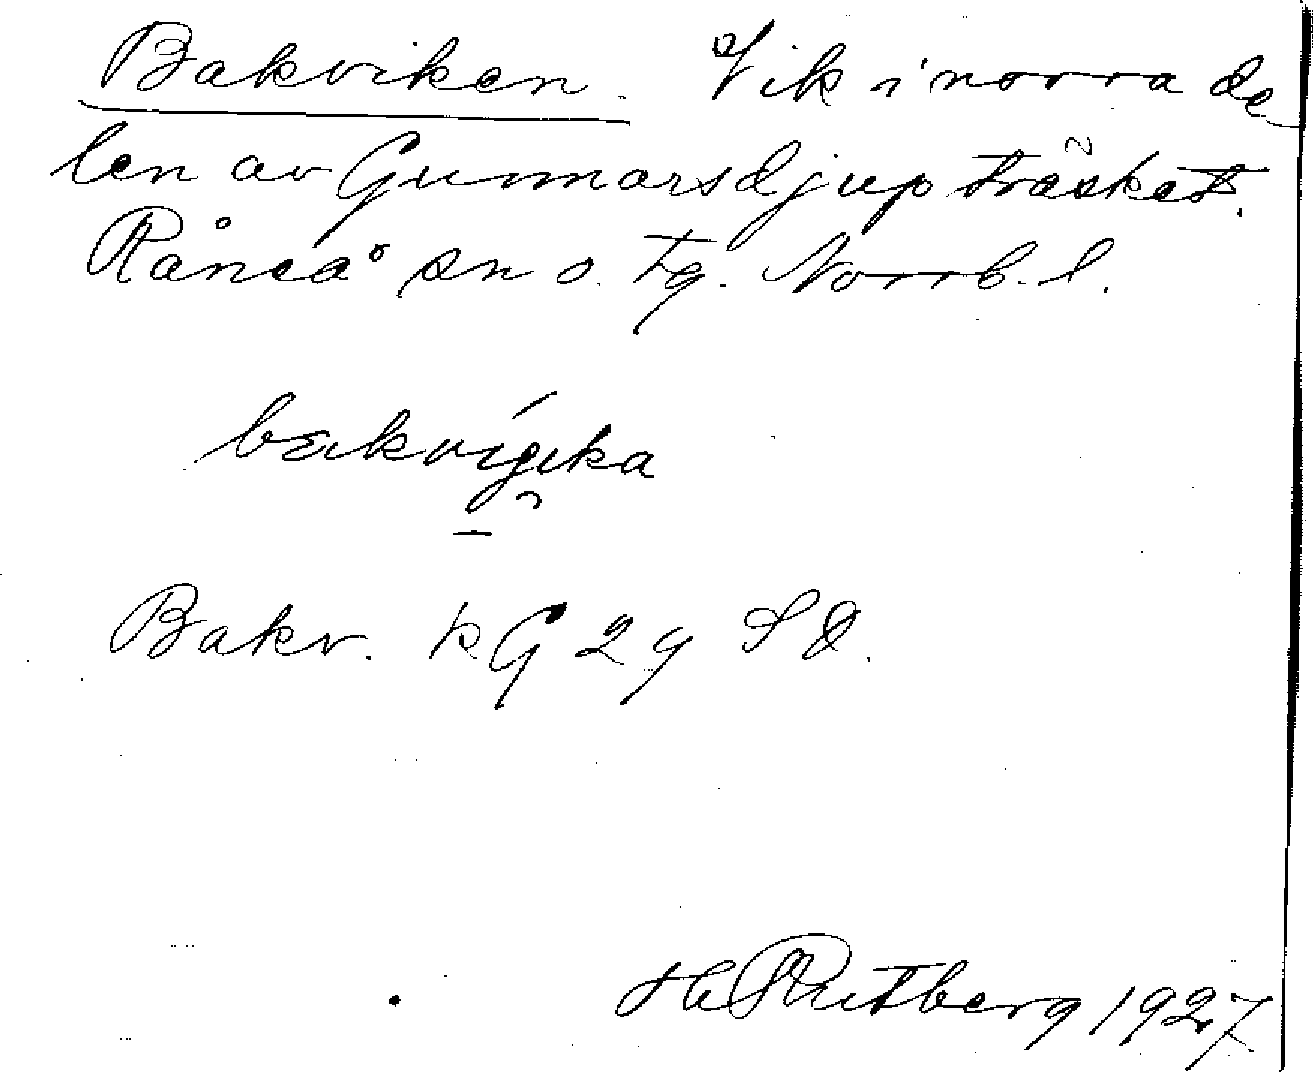 Bakviken. Vik i norra de
len av Gunnarsdjupträsket.
Råneå sn o. tg. Norrb. l.
Bakv. KG 29 SO.
H Rutberg 1927